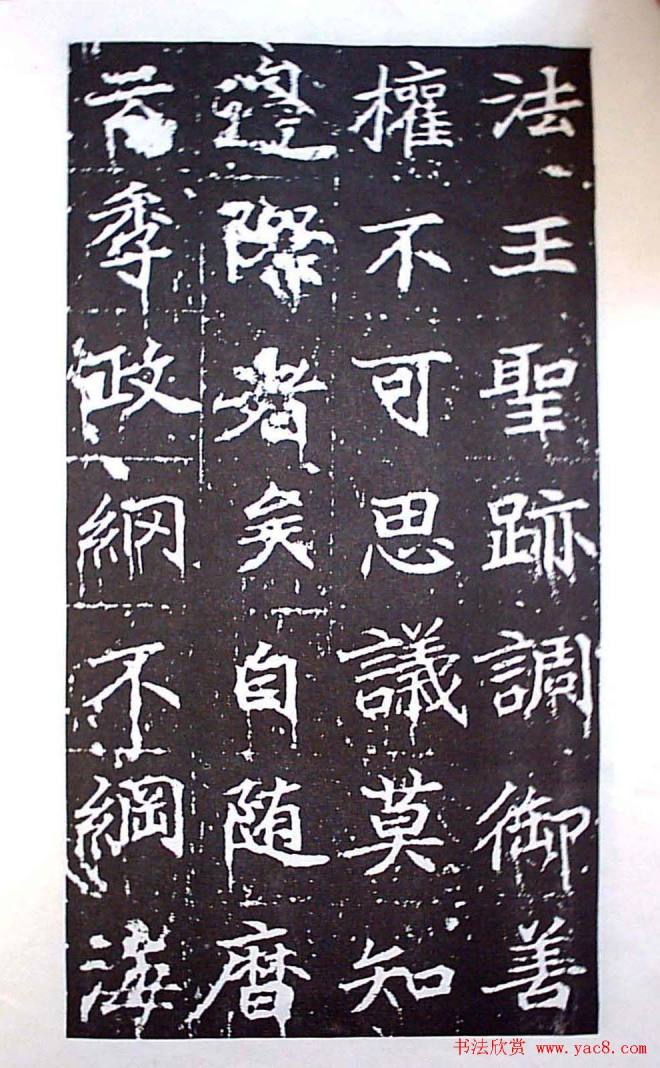 法王聖跡調御善
權不可思議莫知
邊際者矣自随暦
云季政網不綱海
书法欣赏 www.yac8.com